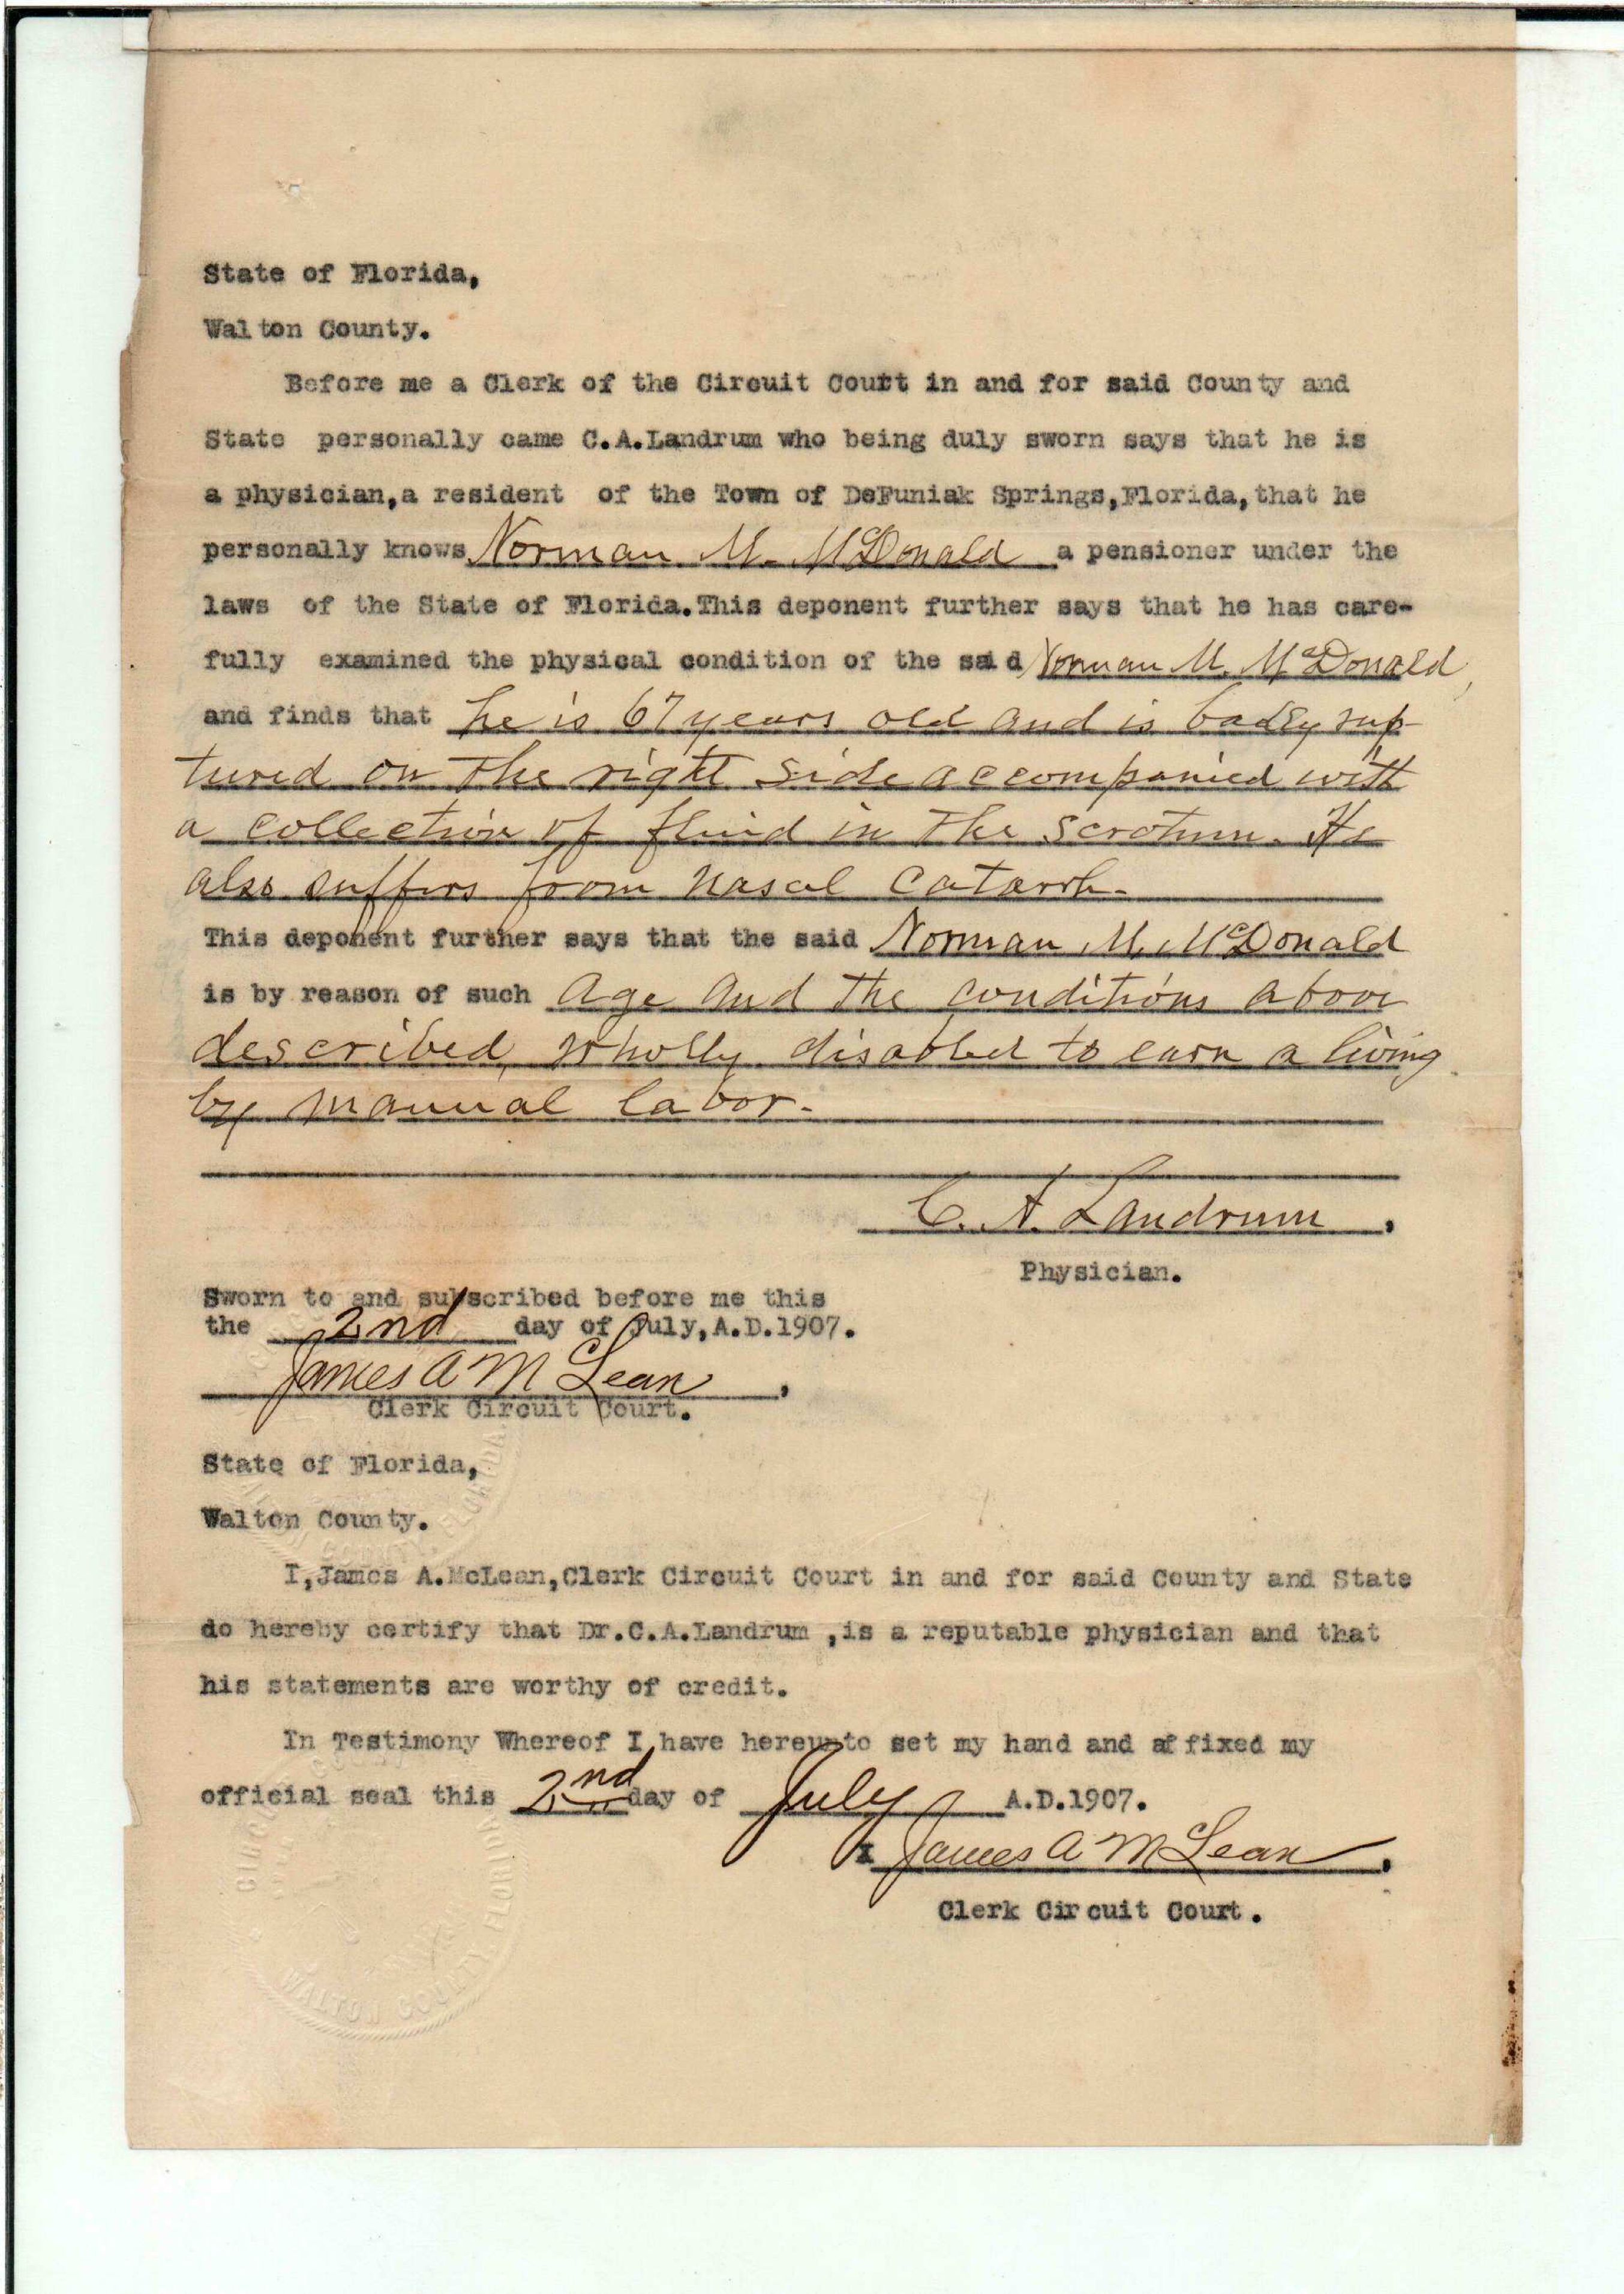 State of Florida,
Walton County.
Before me a Clerk of the Circuit Court in and for said County and
State personally came C.A.Landrum who being duly sworn says that he is
a physician,a resident of the Town of DeFuniak Springs,Florida,that he
personally knows Norman M. McDonald a pensioner under the
laws of the State of Florida.This deponent further says that he has care-
fully examined the physical condition of the said Norman M. McDonald,
and finds that he is 67 years old and is badly rup-
tured on the right side accompanied with
a collection of fluid in the scrotum. He
also suffers from nasal catarrh.
This deponent further says that the said Norman M. McDonald
is by reason of such age and the conditions above
described, wholly disabled to earn a living
by manual labor.
C. A. Landrum.
Physician.
Sworn to and subscribed before me this
the 2nd day of July,A.D.1907.
James A McLean,
Clerk Circuit Court.
State of Florida,
Walton County.
I,James A.McLean,Clerk Circuit Court in and for said County and State
do hereby certify that Dr.C.A.Landrum ,is a reputable physician and that
his statements are worthy of credit.
In Testimony Whereof I have hereunto set my hand and affixed my
official seal this 2nd day of July A.D.1907.
James A McLean.
Clerk Circuit Court.
WALTON COUNTY, FLORIDA